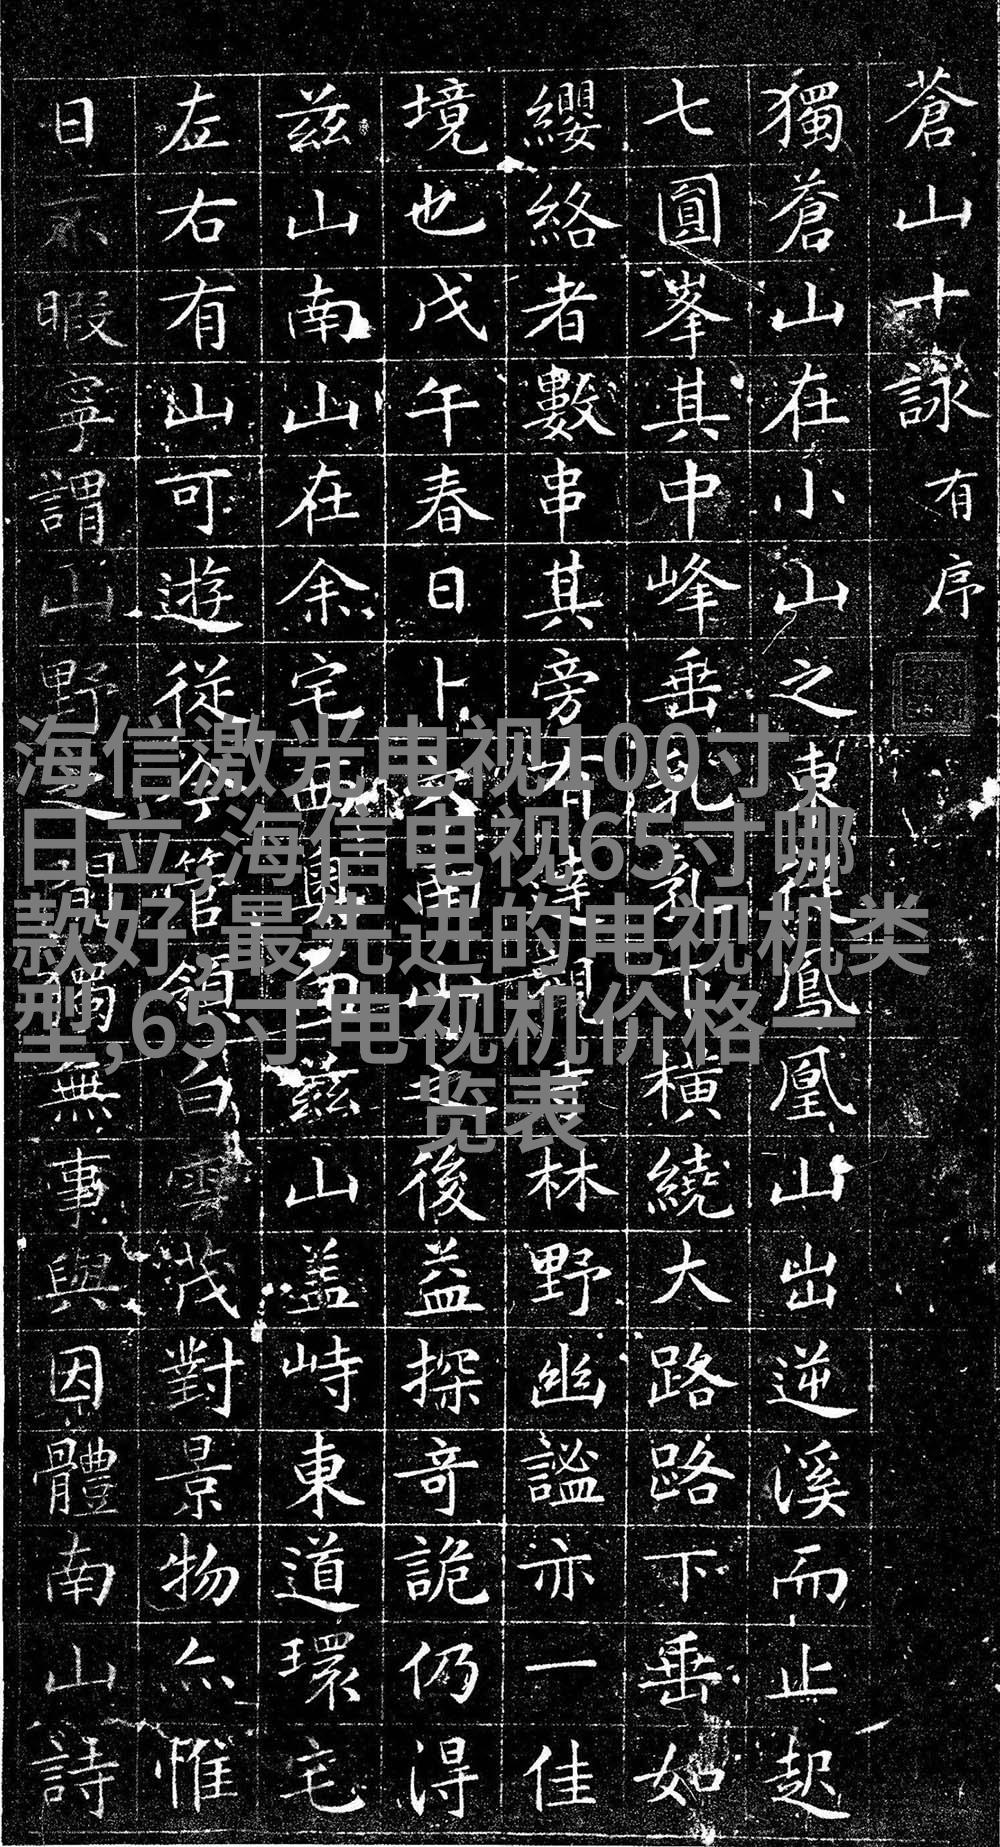 蒼山十詠 有序
獨蒼山在小山之東從鳳凰山出逆溪而止起
七圓峯其中峰垂乳乳下橫繞大路路下垂如
纓絡者數串其旁有達林野幽謐亦一佳
境也戊午春日卜南山之後益探奇詭仍得
茲山南山在余宅西茲山盖峙東道環宅
左右有山可遊從管領白雲茂對景物亦惟
日不暇寧謂山野之間獨無事與因體南山詩
海信激光电视100寸,
日立,海信电视65寸哪
款好,最先进的电视机类
型,65寸电视机价格一
览表